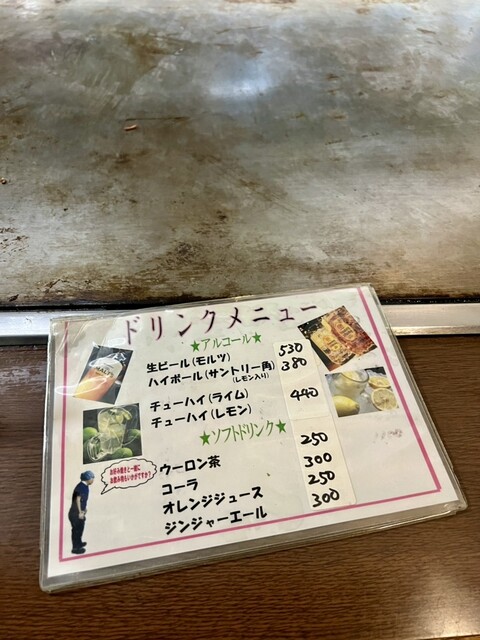 ドリンクメニュー
★アルコール★
生ビール(モルツ) 530
ハイボール(サントリー角) 380
(レモン入り)
チューハイ(ライム) 440
チューハイ(レモン)
★ソフトドリンク★
ウーロン茶 250
コーラ 300
オレンジジュース 250
ジンジャーエール 300
お好み焼きと一緒に
お飲み物もいかがですか?